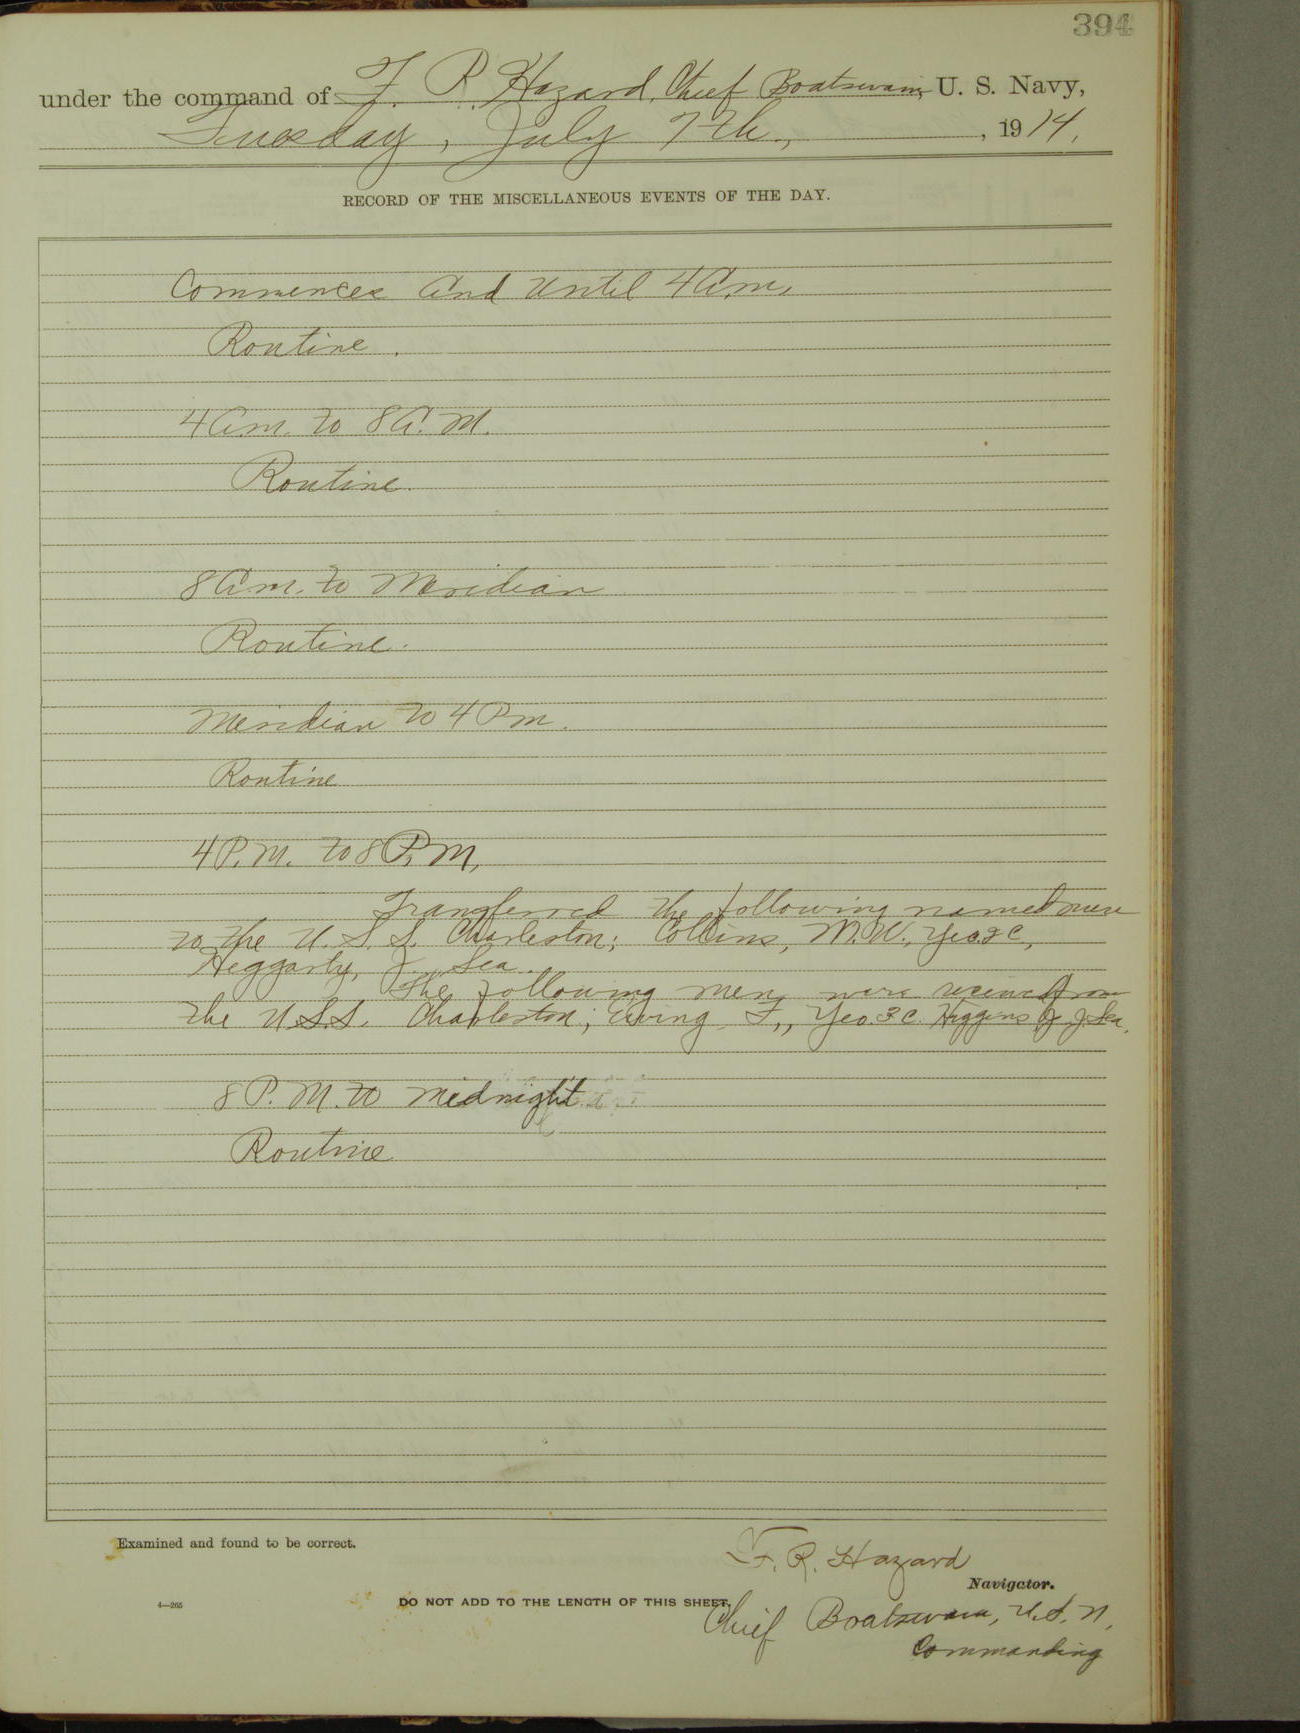 394
under the command of F. R. Hazard, Chief Boatswain, U. S. Navy,
Tuesday, July 7th, , 1914.
RECORD OF THE MISCELLANEOUS EVENTS OF THE DAY.
Commences and until 4 a.m.
Routine.
4 a.m. to 8 A.M.
Routine.
8 a.m. to Meridian
Routine.
Meridian to 4 P.m.
Routine
4 P.M. to 8 P.M.
Transferred the following named men
to the U.S.S. Charleston; Collins, M.W., Yeo. 2c,
Heggarty, J. Sea.
The following men were received from
the U.S.S. Charleston; Ewing F., Yeo. 3c. Higgins J. J. Sea.
8 P.M. to Midnight
Routine
Examined and found to be correct.
F. R. Hazard
Navigator.
4—265
DO NOT ADD TO THE LENGTH OF THIS SHEET.
Chief Boatswain, U.S.N.
Commanding